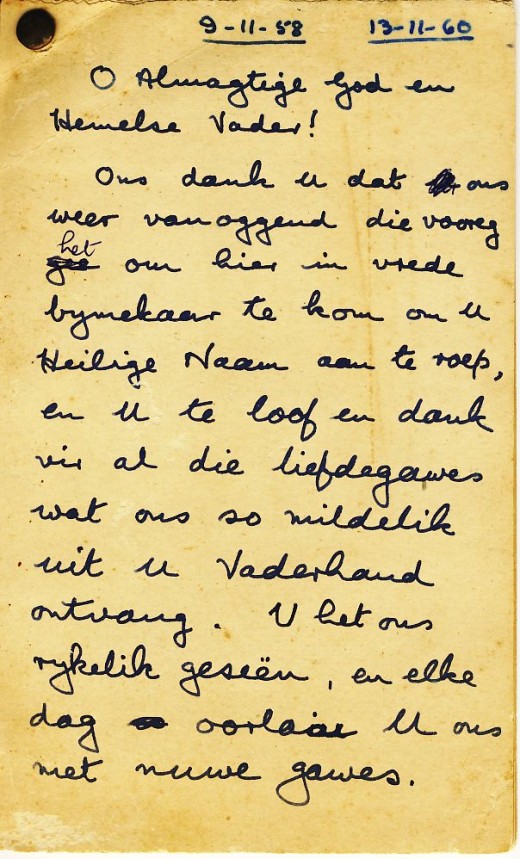 9-11-58 13-11-60
O Almagtige God en
Hemelse Vader!
Ons dank U dat ons
weer vanoggend die voorreg
het om hier in vrede
bymekaar te kom om U
Heilige Naam aan te roep,
en U te loof en dank
vir al die liefdegawes
wat ons so mildelik
uit U Vaderhand
ontvang. U het ons
rykelik geseën, en elke
dag oorlaai U ons
met nuwe gawes.